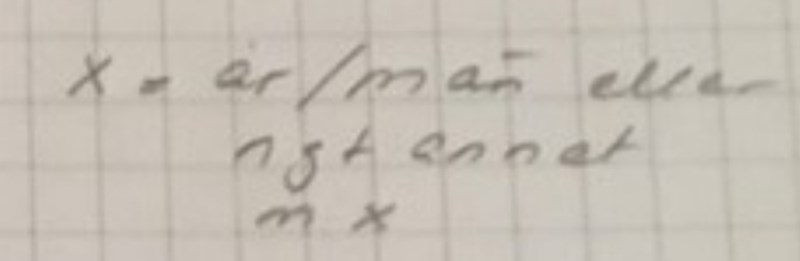 x = år/mån eller
ngt annat
m x